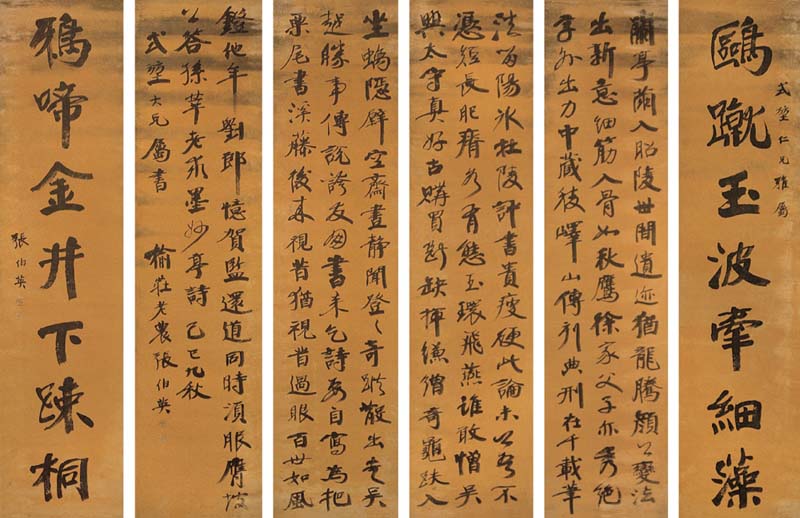 式塋仁兄雅屬
鷗蹴玉波牽細藻
蘭亭繭入昭陵世間遺迹猶龍騰顏公變法
出新意細筋入骨如秋鷹徐家父子亦秀絕
字外出力中藏稜嶧山傳刻典刑在千載筆
法留陽冰杜陵評書貴瘦硬此論未公吾不
憑短長肥瘠各有態玉環飛燕誰敢憎吳
興太守真好古購買斷缺揮縑繒奇龜趺入
坐螭隱壁空齋晝靜聞登〻奇蹤散出走吳
越勝事傳說誇友朋書来乞詩要自寫為把
栗尾書溪藤後来視昔猶視昔過眼百世如風
鐙他年劉郎憶賀監還道同時須服膺坡
公答孫莘老求墨妙亭詩 己巳九秋
式塋大兄屬書
榆莊老農張伯英
鴉啼金井下疎桐
張伯英